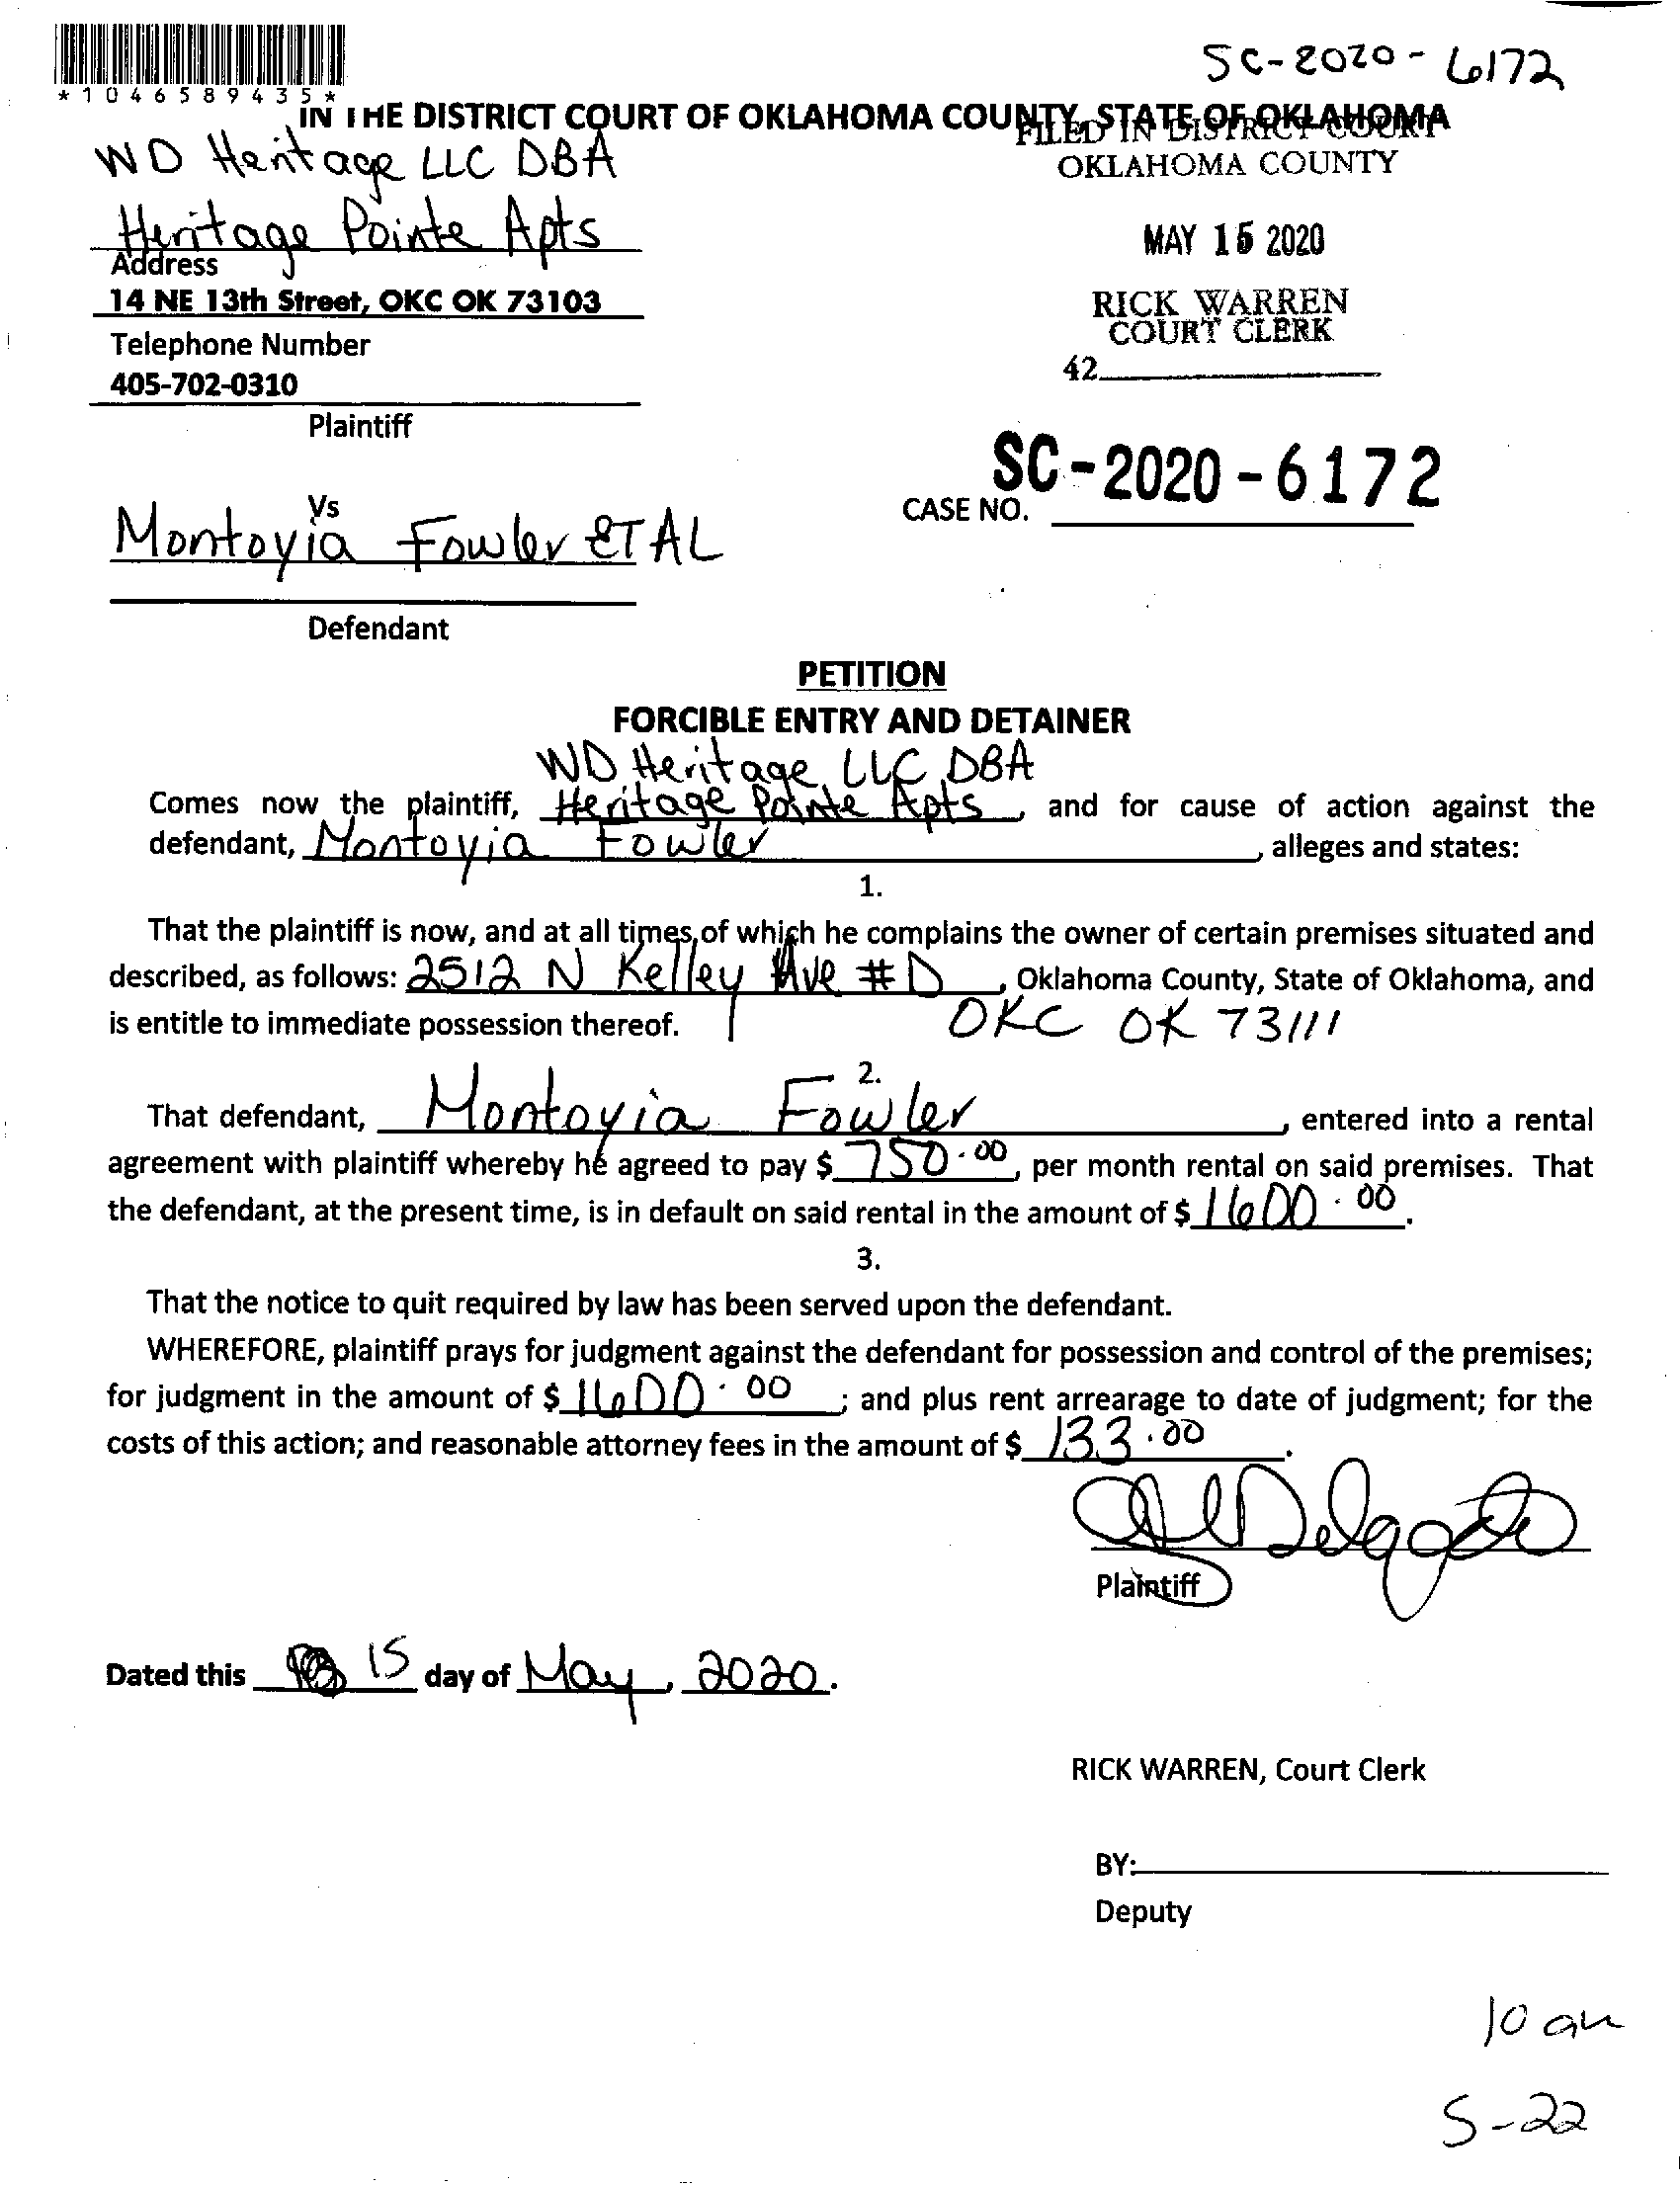 SC-2020-6172
*1046589435*
IN THE DISTRICT COURT OF OKLAHOMA COUNTY, STATE OF OKLAHOMA
FILED IN DISTRICT COURT
OKLAHOMA COUNTY
WD Heritage LLC DBA
Heritage Pointe Apts
MAY 15 2020
Address
14 NE 13th Street, OKC OK 73103
RICK WARREN
COURT CLERK
Telephone Number
42
405-702-0310
Plaintiff
SC-2020-6172
CASE NO.
Vs
Montoyia Fowler ET AL
Defendant
PETITION
FORCIBLE ENTRY AND DETAINER
WD Heritage LLC DBA
Comes now the plaintiff, Heritage Pointe Apts, and for cause of action against the
defendant, Montoyia Fowler, alleges and states:
1.
That the plaintiff is now, and at all times, of which he complains the owner of certain premises situated and
described, as follows: 2512 N Kelley Ave #D, Oklahoma County, State of Oklahoma, and
is entitle to immediate possession thereof. OKC OK 73111
2.
That defendant, Montoyia Fowler, entered into a rental
agreement with plaintiff whereby he agreed to pay $ 750.00, per month rental on said premises. That
the defendant, at the present time, is in default on said rental in the amount of $ 1600.00.
3.
That the notice to quit required by law has been served upon the defendant.
WHEREFORE, plaintiff prays for judgment against the defendant for possession and control of the premises;
for judgment in the amount of $ 1600.00; and plus rent arrearage to date of judgment; for the
costs of this action; and reasonable attorney fees in the amount of $ 133.00.
Delgado
Plaintiff
Dated this 15 day of May, 2020.
RICK WARREN, Court Clerk
BY:
Deputy
10 am
5-22